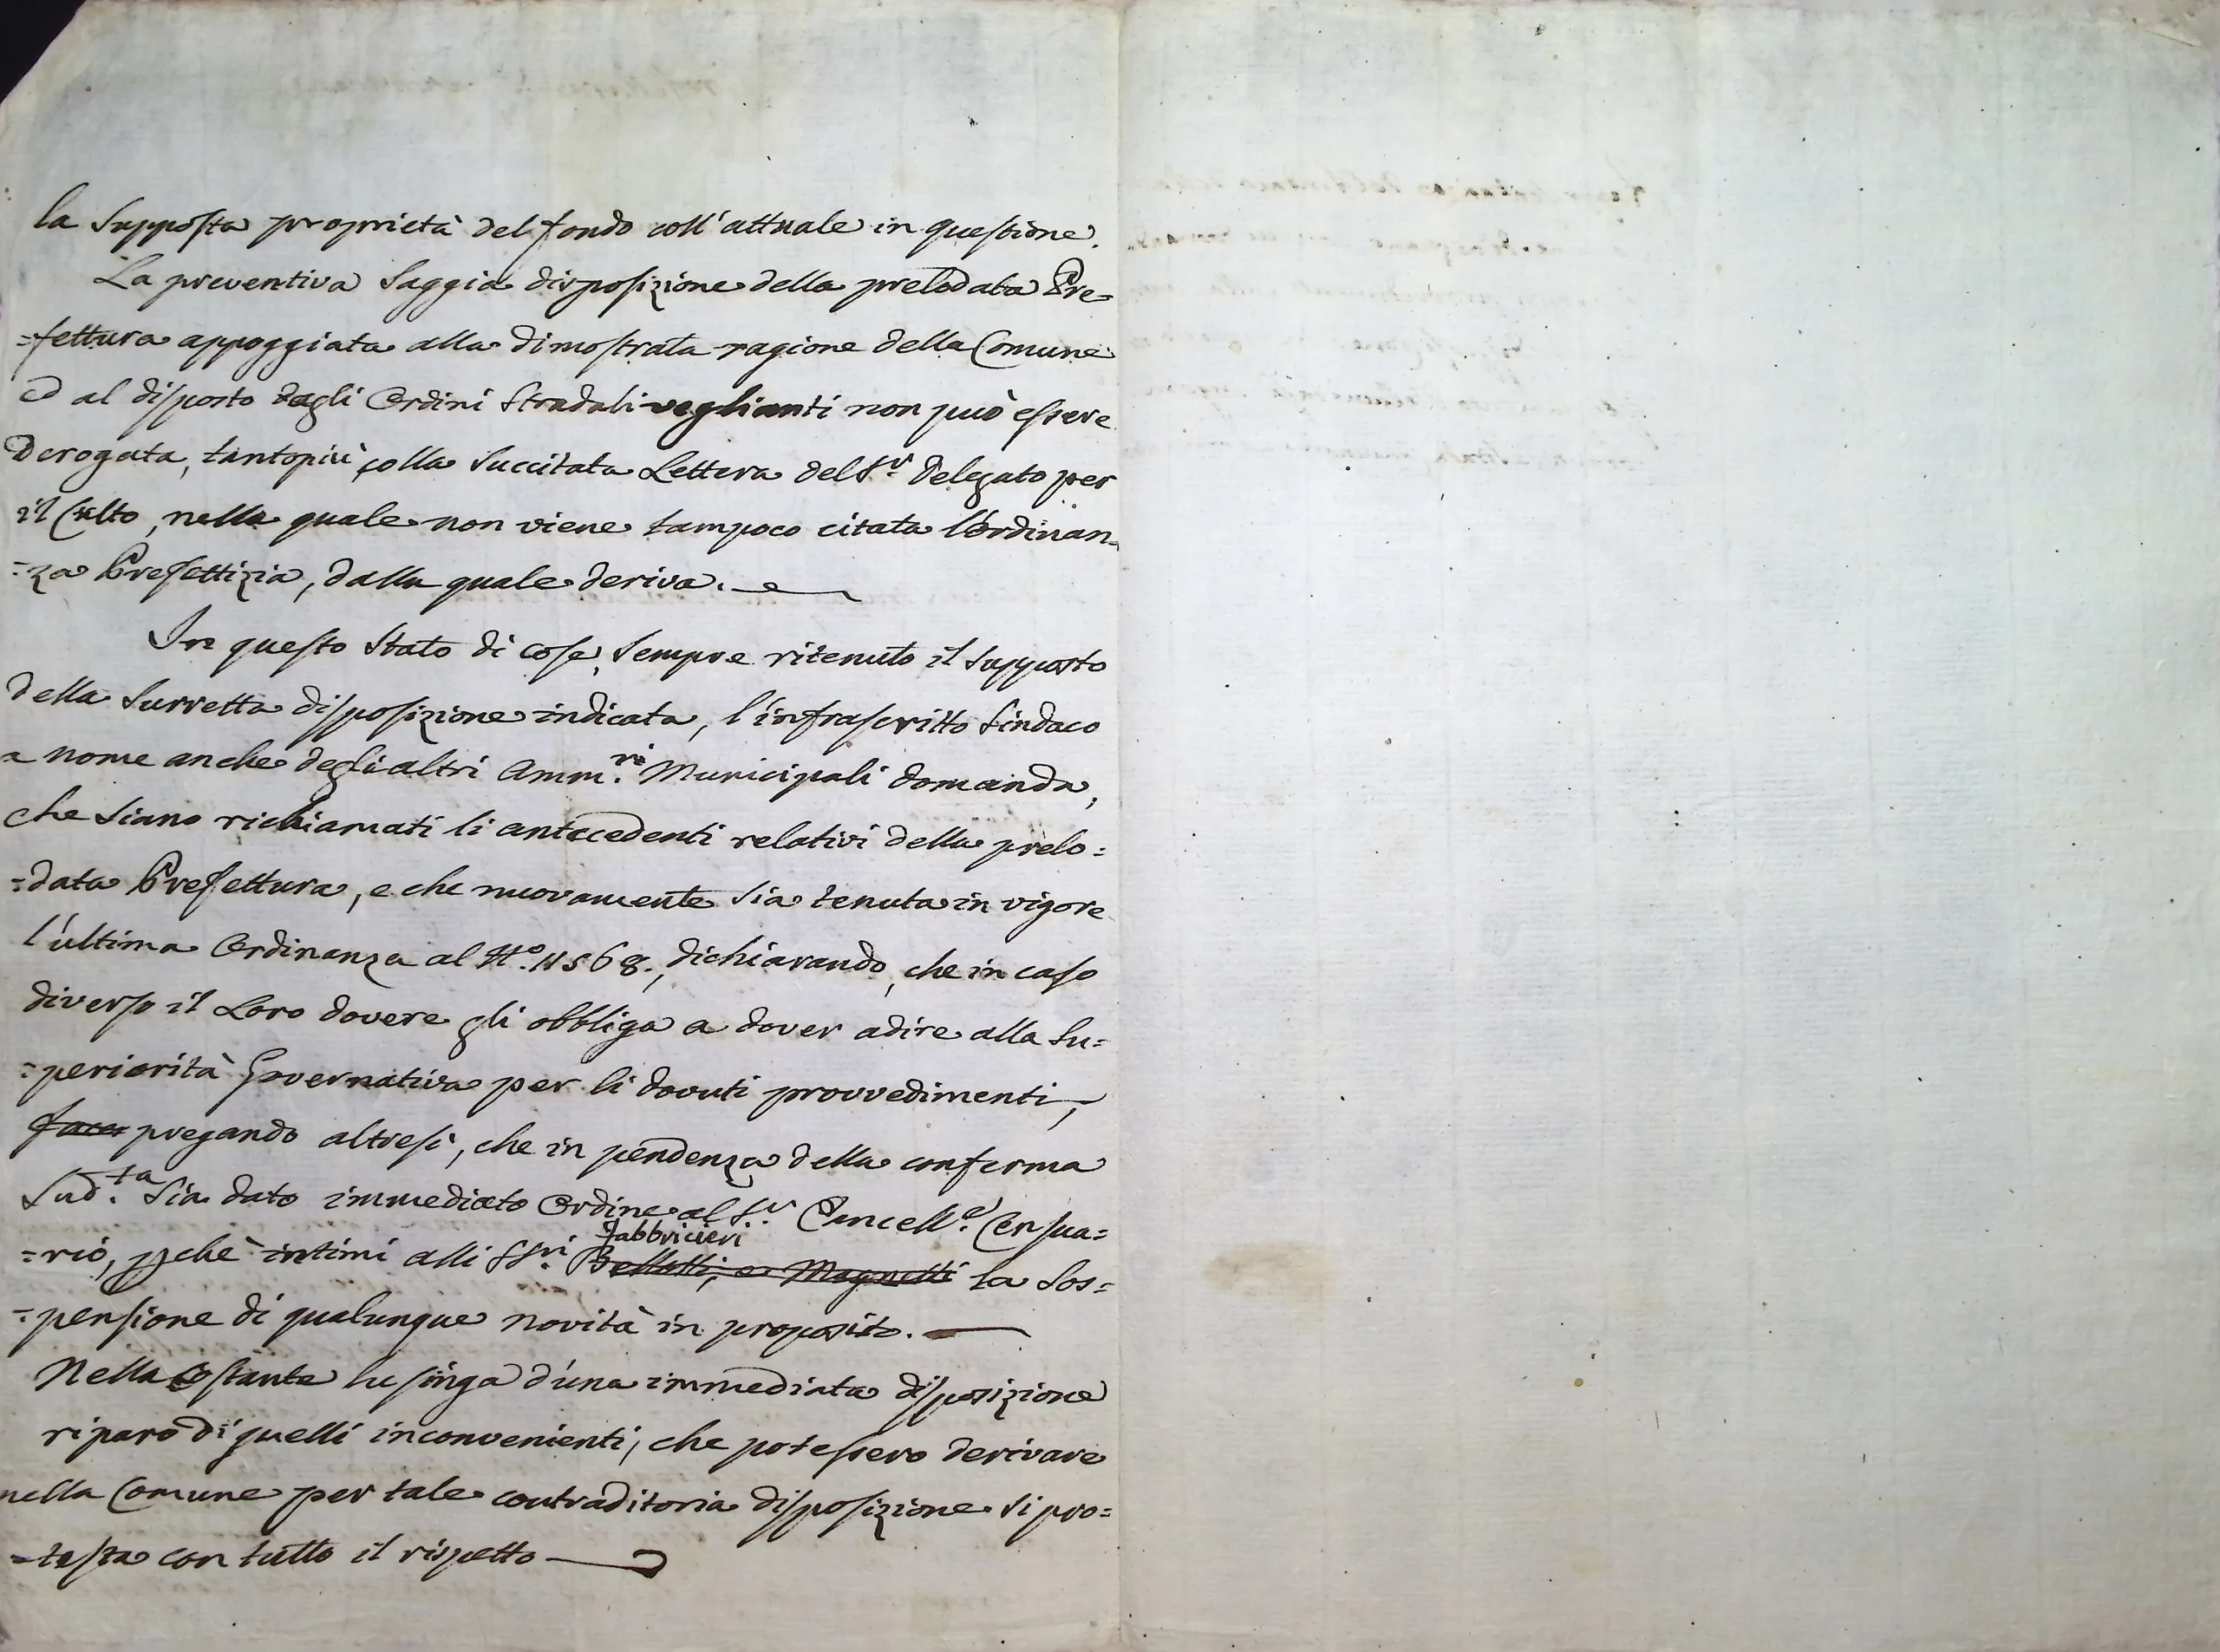 la supposta proprietà del fondo coll'attuale in questione.
La preventiva saggia disposizione della prelodata Pre=
=fettura appoggiata alla dimostrata ragione della Comune
ed al disposto dagli Ordini Stradali veglianti non può essere
derogata, tantopiù colla succitata Lettera del Sr. Delegato per
il Culto, nella quale non viene tampoco citata l'Ordinan=
=za Prefettizia, dalla quale deriva.
In questo stato di cose, sempre ritenuto il supposto
della surretta disposizione indicata, l'infrascritto Sindaco
a nome anche degli altri Amm.ri Municipali domanda,
che siano richiamati li antecedenti relativi della prelo=
=data Prefettura, e che nuovamente sia tenuta in vigore
l'ultima Ordinanza al No. 11568., dichiarando, che in caso
diverso il Loro dovere gli obbliga a dover adire alla Su=
=periorità Governativa per li dovuti provvedimenti,
pregando altresì, che in pendenza della conferma
sud.ta sia dato immediato Ordine al Sr. Cancell.e Censua=
Fabbricieri
=rio, pchè intimi alli SSri. Belletti, e Magnetti la sos=
=pensione di qualunque novità in proposito.
Nella costante lusinga d'una immediata disposizione
riparo di quelli inconvenienti, che potessero derivare
nella Comune per tale contraditoria disposizione si pro=
=testa con tutto il rispetto